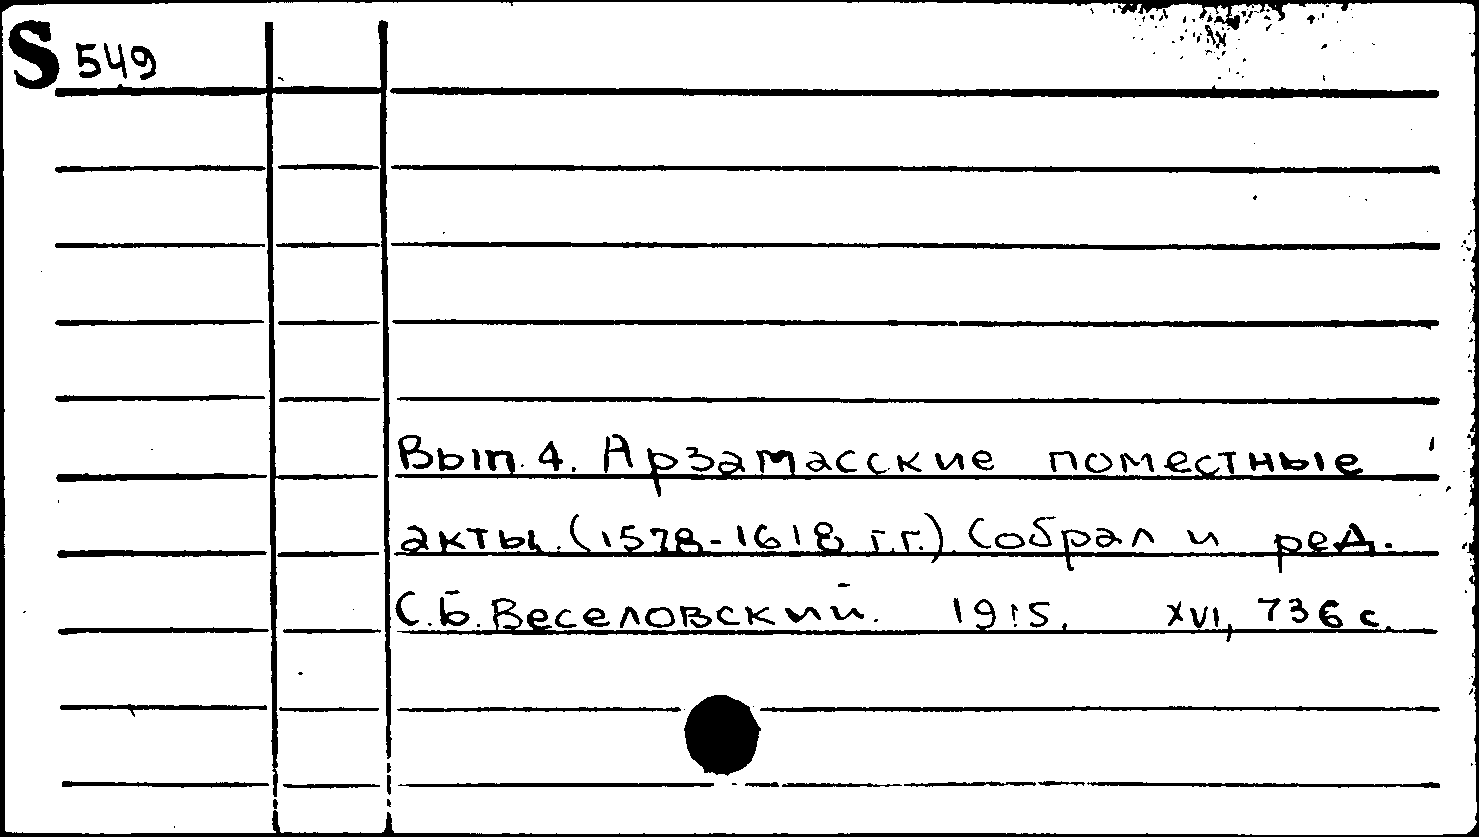 S 549
Вып. 4. Арзамасские поместные
акты. (1578-1618 г.г.) Собрал и ред.
С.Б. Веселовский. 1915. XVI, 736 с.